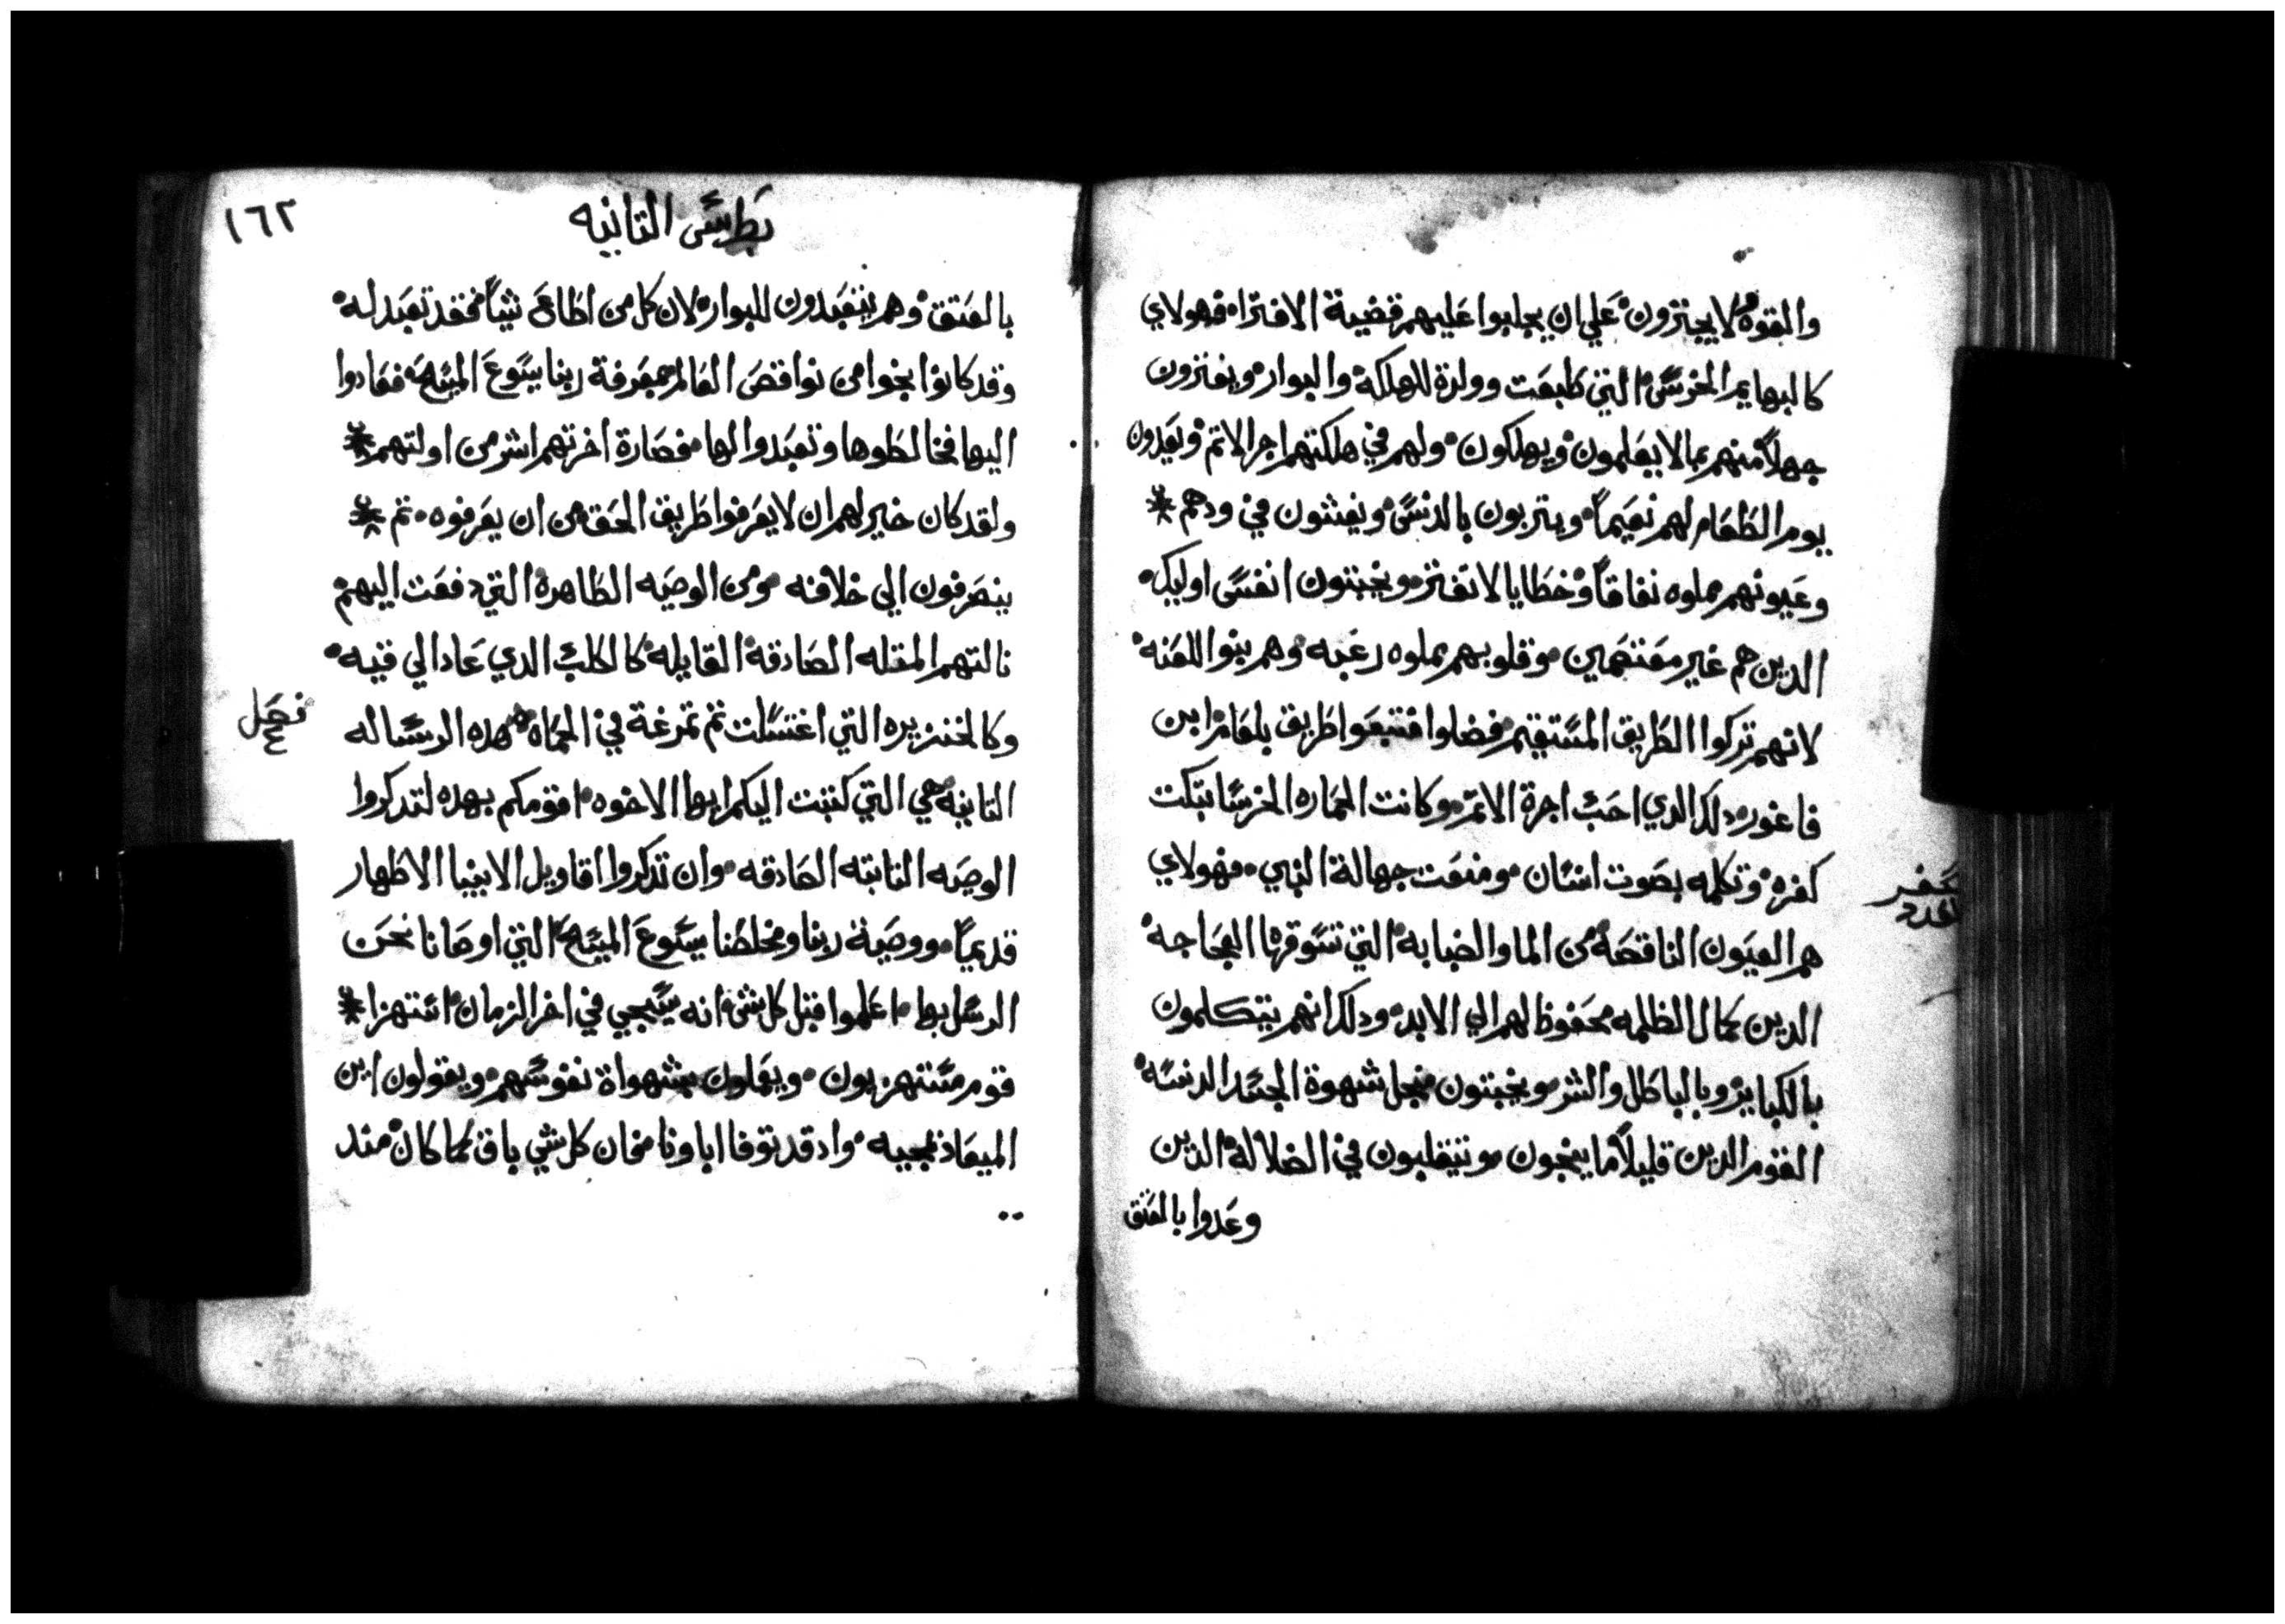 والقوه لا يجتزون علي ان يجلبوا عليهم قضية الافتراء فهولاي
كالبهايم الخرس التي طبعت وولدة للهلكه والبوار ويفترون
جهلاً منهم بما لا يعلمون ويهلكون ولهم في هلكتهم اجر الاتم ويعدون
يوم الطعام لهم نعيماً ويتربون بالدنس ويفتون في ودهم
وعيونهم مملوه نفاقاً وخطايا لا تفتر ويخبتون انفس اوليك
الدين هم غير معتصمين وقلوبهم مملوه رعبه وهم بنوا اللعنه
لانهم تركوا الطريق المستقيم فضلوا فتبعوا طريق بلعام ابن
فاغور دلك الدي احب اجرة الاتم وكانت الحماره الخرسا بتكت
كفره وتكلمه بصوت انسان ومنعت جهالة النبي فهولاي
سفر
العدد
هم العيون الناقصه من الما والضبابه التي تسوقها العجاجه
الدين كمال الظلمه محفوظ لهم الي الابد ودلك انهم يتكلمون
بالكباير وبالباطل والشر ويخبتون منجل شهوة الجسد الدنسه
القوم الدين قليلاً ما ينجون وتتقلبون في الضلاله الدين
وعدوا بالعتق
بطرس التانيه
١٦٢
بالعتق وهم يتعبدون للبوار لان كل من اطاع شياً فقد تعبد له
وقد كانوا نجوا من نواقص العالم بمعرفة ربنا يسوع المسيح فعادوا
اليها فخالطوها وتعبدوا لها فصارة اخرتهم اشر من اولتهم
ولقد كان خير لهم ان لا يعرفوا طريق الحق من ان يعرفوه تم
ينصرفون الي خلافه ومن الوصيه الطاهره التي دفعت اليهم
نالتهم المتله الصادقه القايله كالكلب الدي عاد الي قيه
وكالخنزيره التي اغتسلت تم تمرغة في الحماه هده الرساله
فصل
التانيه هي التي كتبت اليكم ايها الاخوه اقومكم بهده لتدكروا
الوصيه التابته الصادقه وان تدكروا اقاويل الانبيا الاطهار
قديماً ووصية ربنا ومخلصنا يسوع المسيح التي اوصانا نحن
الرسل بها اعلموا قبل كل شي انه سيجي في اخر الزمان استهزا
قوم مستهزيون ويعملون بشهواة نفوسهم ويقولون اين
الميعاد بمجيه واد قد توفا اباونا فان كل شي باق كما كان مند